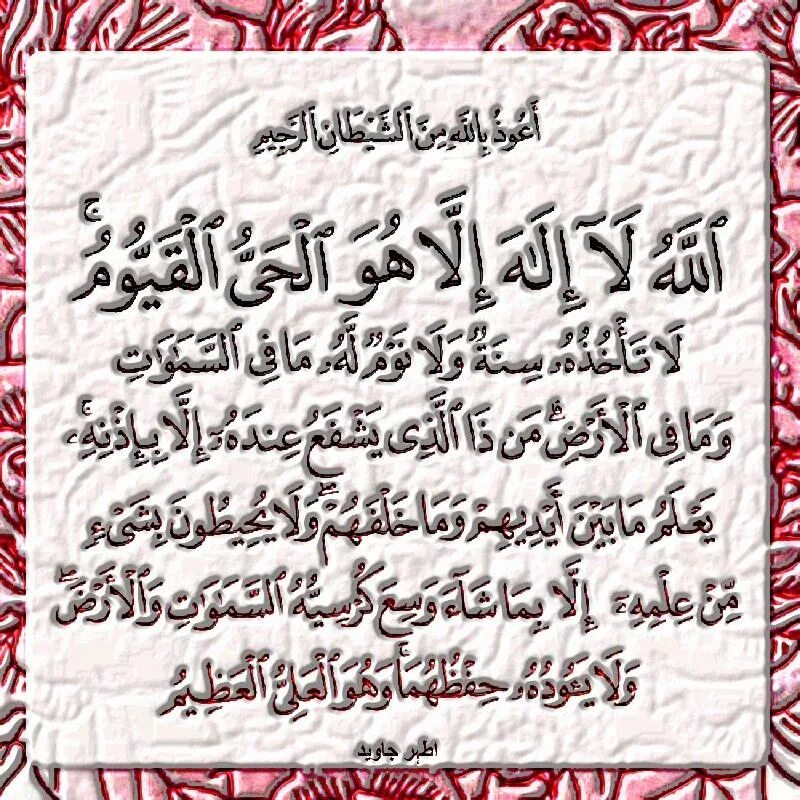 أَعُوذُ بِاللَّهِ مِنَ ٱلشَّيْطَانِ ٱلرَّجِيمِ
ٱللَّهُ لَآ إِلَٰهَ إِلَّا هُوَ ٱلْحَىُّ ٱلْقَيُّومُ ۚ
لَا تَأْخُذُهُۥ سِنَةٌ وَلَا نَوْمٌ لَّهُۥ مَا فِى ٱلسَّمَٰوَٰتِ
وَمَا فِى ٱلْأَرْضِ ۗ مَن ذَا ٱلَّذِى يَشْفَعُ عِندَهُۥٓ إِلَّا بِإِذْنِهِۦ ۚ
يَعْلَمُ مَا بَيْنَ أَيْدِيهِمْ وَمَا خَلْفَهُمْ ۖ وَلَا يُحِيطُونَ بِشَىْءٍ
مِّنْ عِلْمِهِۦٓ إِلَّا بِمَا شَآءَ وَسِعَ كُرْسِيُّهُ ٱلسَّمَٰوَٰتِ وَٱلْأَرْضَ ۖ
وَلَا يَـُٔودُهُۥ حِفْظُهُمَا ۚ وَهُوَ ٱلْعَلِىُّ ٱلْعَظِيمُ
اطہر جاوید